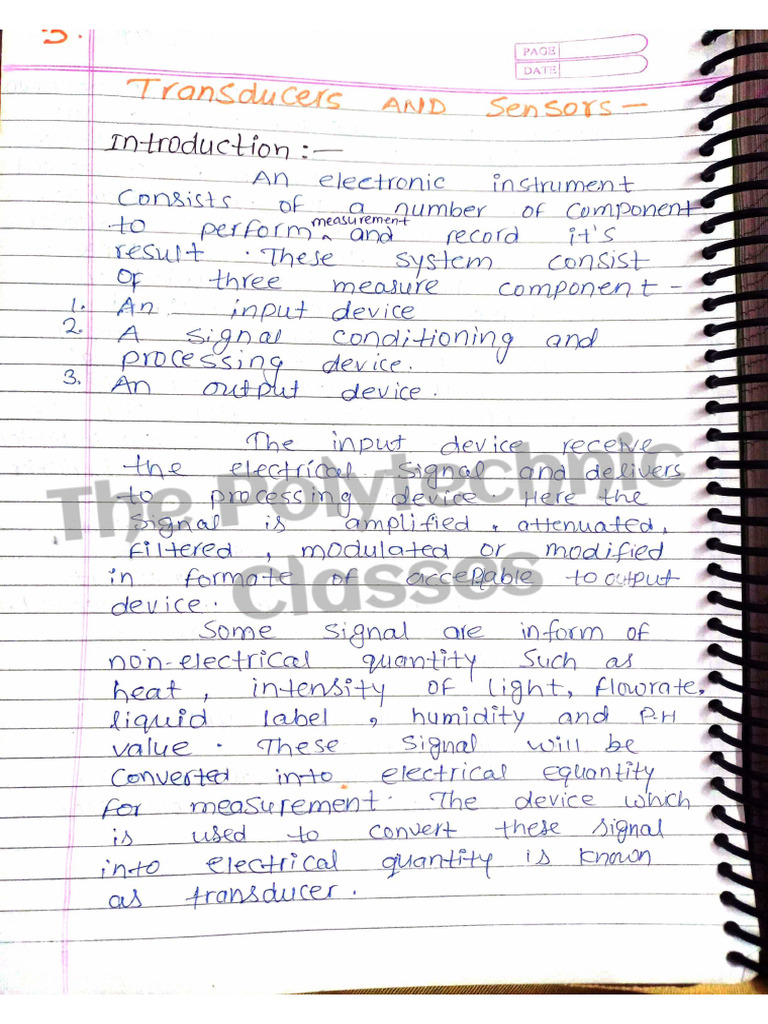 5.
PAGE
DATE
Transducers AND Sensors —
Introduction :—
An electronic instrument
consists of a number of component
to perform ^ measurement and record it's
result . These system consist
of three measure component –
1. An input device
2. A signal conditioning and
processing device.
3. An output device .
The input device receive
the electrical signal and delivers
to processing device . Here the
signal is amplified , attenuated ,
filtered , modulated or modified
in formate of acceptable to output
device .
Some signal are inform of
non-electrical quantity such as
heat , intensity of light , flowrate ,
liquid label , humidity and P.H
value . These signal will be
converted into electrical equantity
for measurement . The device which
is used to convert these signal
into electrical quantity is known
as transducer .
The Polytechnic
Classes